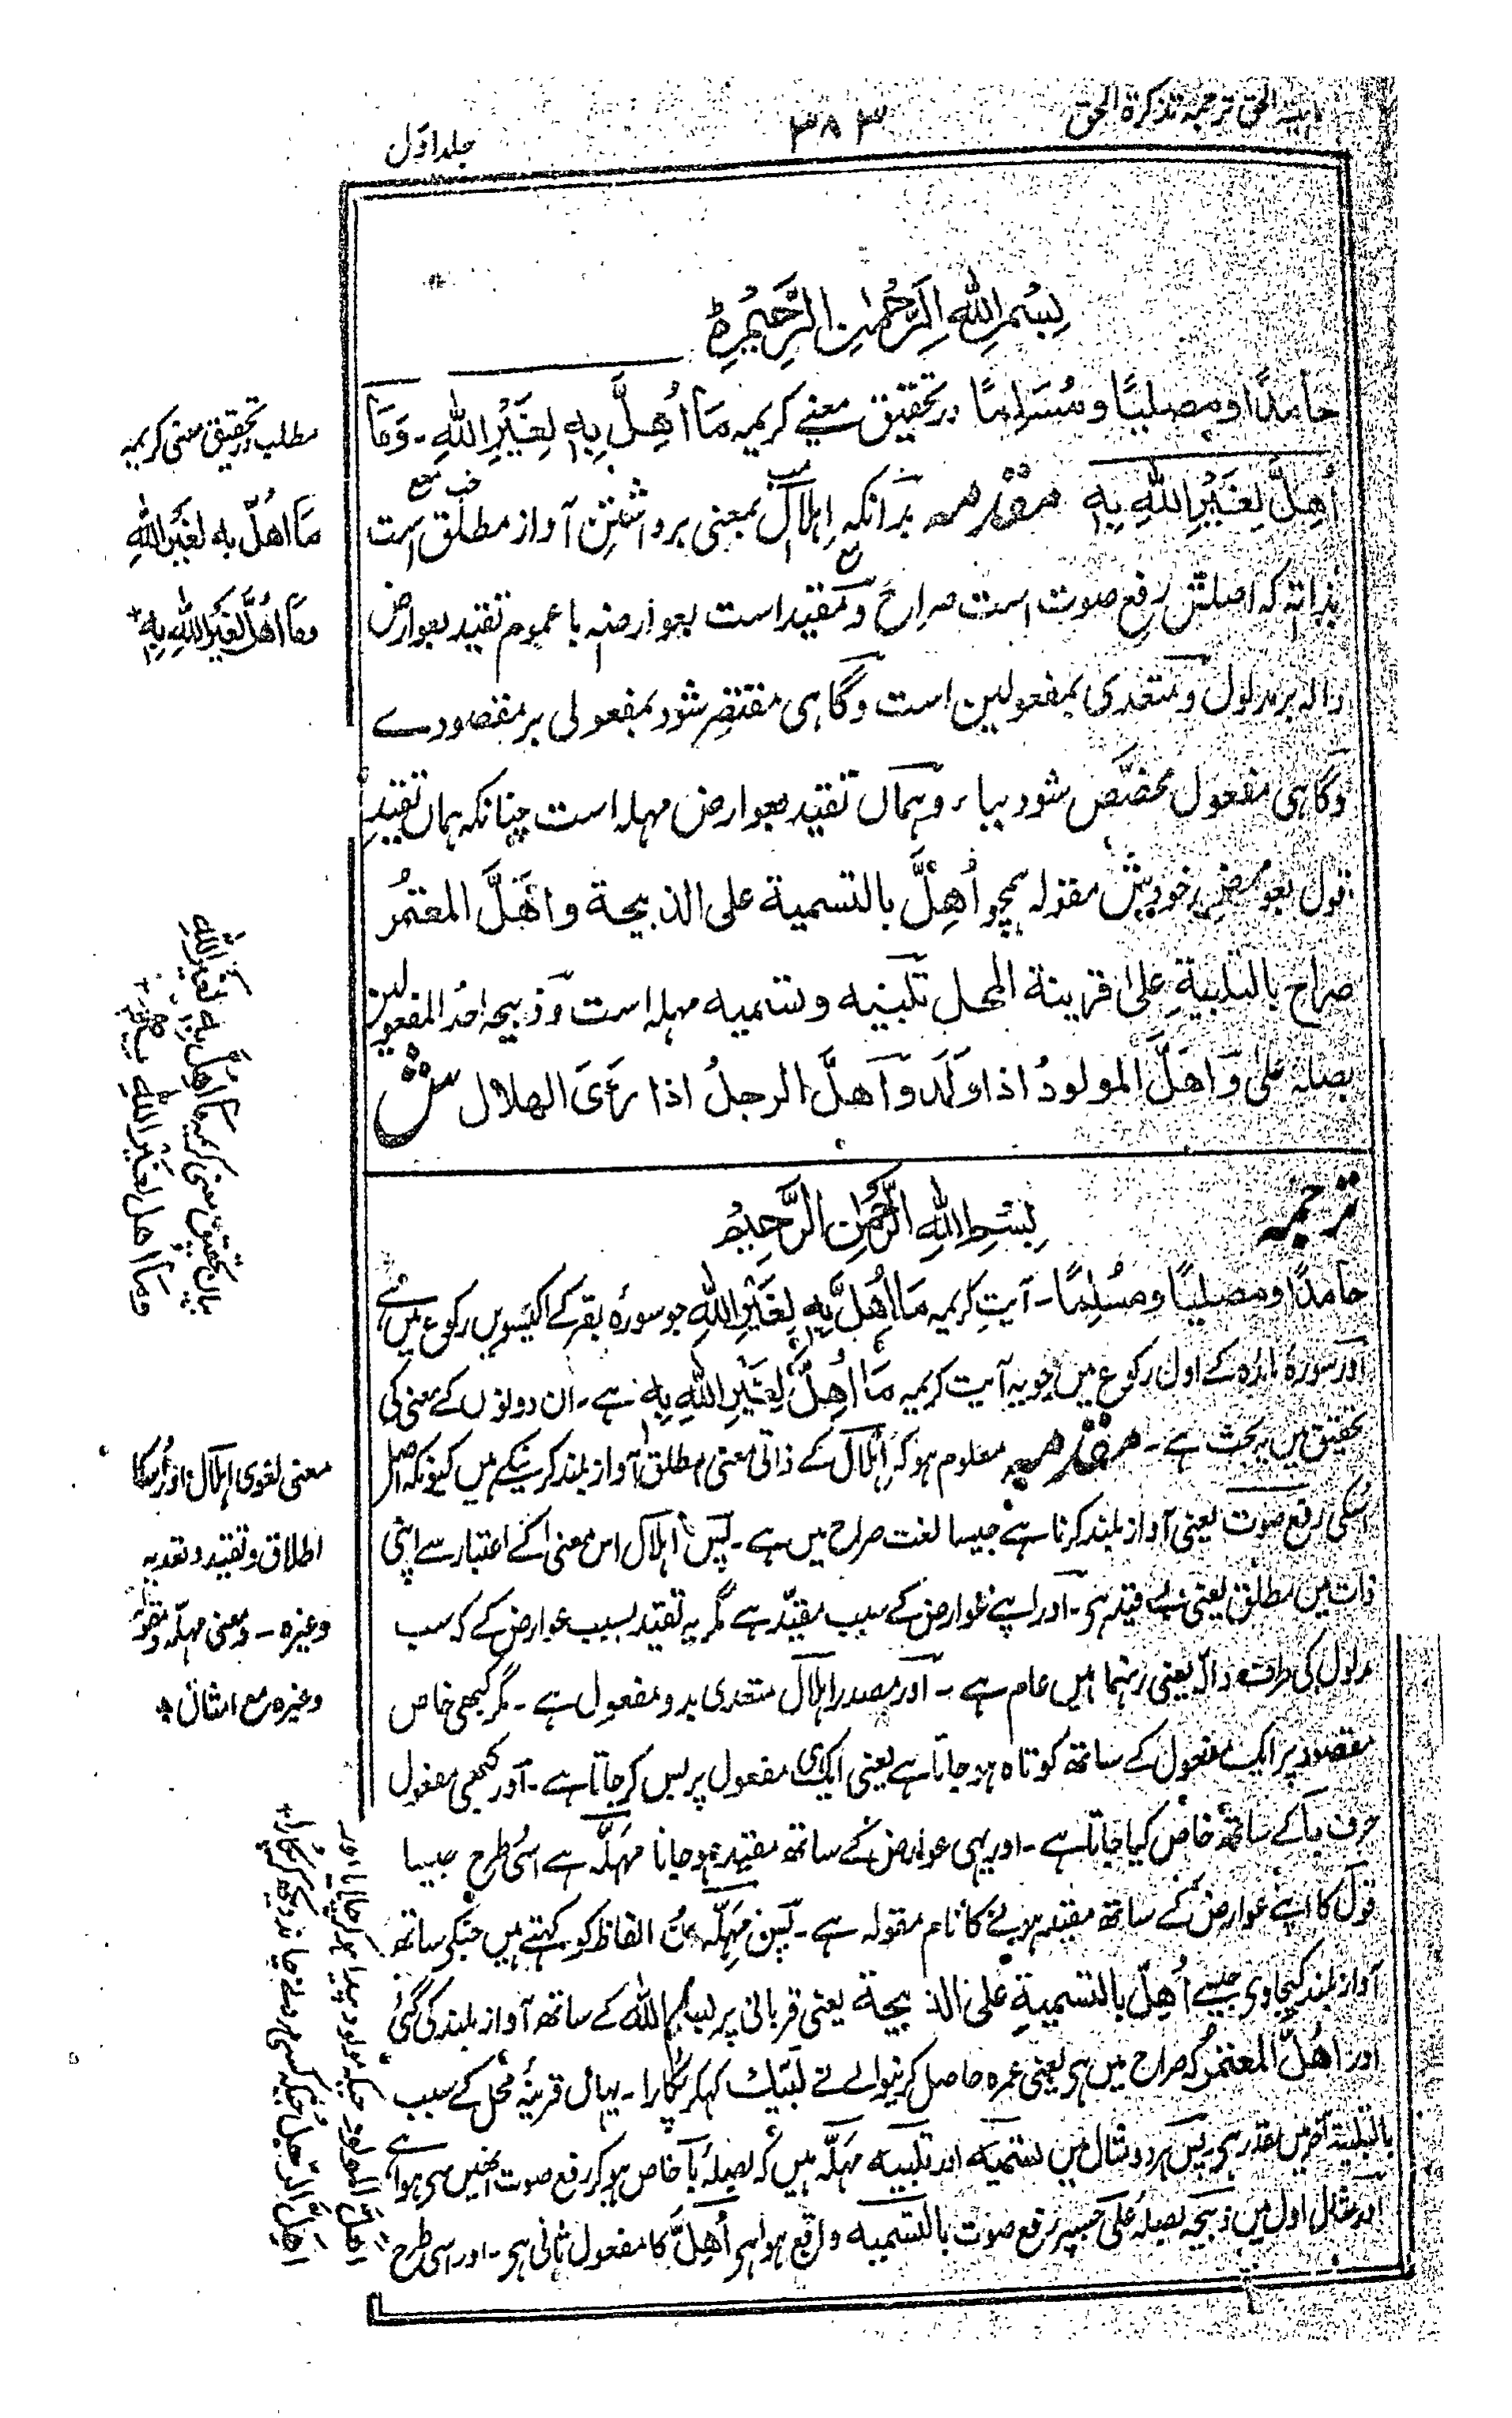 الحق ترجمہ تذکرۃ الحق
۳۸۳
جلد اوّل
بِسْمِ اللّٰهِ الرَّحْمٰنِ الرَّحِيْمِ
حامدًا ومصلیًا ومُسَلِّمًا در تحقیق معنے کریمہ مَا اُهِلَّ بِهٖ لِغَيْرِ اللّٰهِ ۔ وَمَا
اُهِلَّ لِغَيْرِ اللّٰهِ بِهٖ مقدمہ بدانکہ اِہلال بمعنی برداشتن آواز مطلق است
بذاتہ کہ اصلش رفع صوت است صراح ومقید است بعوارضہ با عموم تقید بعوارض
دالہ بر مدلول ومتعدی بمفعولین است وگاہی مقتصر شود بمفعولی بر مقصودے
وگاہی مفعول مخصّص شود بباء وہماں تقید بعوارض مہلہ است چنانکہ ہماں تقید
قول بعوارض خودبیش مقولہ ہمچو اُهِلَّ بالتسمية على الذبيحة واَهَلَّ المعتمُر
صراح بالتلبيةِ على قرينة المحل تلبیہ وتسمیہ مہلہ است وذبیحہ احد المفعولین
بصلہ علی وَاَهَلَّ المولودُ اذا وَلَدَ وَاَهَلَّ الرجلُ اذا رَءَىَ الهلال ش
مطلب در تحقیق معنی کریمہ
مَا اُهِلَّ به لغَيرِ اللّٰهِ
ومَا اُهلَّ لغَيرِ اللّٰهِ بِهٖ
بیان تحقیق معنی کریمہ مَا اُهِلَّ بِهٖ لِغَيرِ اللّٰهِ
ومَا اُهل لغَيْرِ اللّٰهِ بہٖ
ترجمہ
بِسْمِ اللّٰهِ الرَّحْمٰنِ الرَّحِيْمِ
حامدًا ومصلیًا ومُسَلِّمًا ۔ آیتِ کریمہ مَا اُهِلَّ بِهٖ لِغَيْرِ اللّٰهِ جو سورۂ بقر کے اکیسویں رکوع میں ہے
اور سورۂ مائدہ کے اول رکوع میں جو یہ آیت کریمہ مَا اُهِلَّ لِغَيْرِ اللّٰهِ بِهٖ ہے ۔ ان دونوں کے معنی کی
تحقیق میں یہ بحث ہے ۔ مقدمہ معلوم ہو کہ اِہلال کے ذاتی معنی مطلق آواز بلند کرنیکے ہیں کیونکہ اصل
اسکی رفع صوت یعنی آواز بلند کرنا ہے جیسا لغت صراح میں ہے ۔ پس اہلال اس معنی کے اعتبار سے اپنی
ذات میں مطلق یعنی بے قید ہی ۔ اور اپنے عوارض کے سبب مقیّد ہے مگر یہ تقید بسبب عوارض کے کہ سب
مدلول کی طرف دالّ یعنی رہنما ہیں عام ہے ۔ اور مصدر اہلال متعدی بدو مفعول ہے ۔ مگر کبھی خاص
مقصود پر ایک مفعول کے ساتھ کوتاہ ہو جاتا ہے یعنی ایک ہی مفعول پر بس کر جاتا ہے ۔ اور کبھی مفعول
حرف با کے ساتھ خاص کیا جاتا ہے ۔ اور یہی عوارض کے ساتھ مقید ہو جانا مہلّہ ہے اسی طرح جیسا
قول کا اپنے عوارض کے ساتھ مقید ہونے کا نام مقولہ ہے ۔ پس مہلّہ اُن الفاظ کو کہتے ہیں جنکے ساتھ
آواز بلند کیجاوے جیسے اُهِلَّ بالتسميةِ على الذبيحة یعنی قربانی پر بسم اللہ کے ساتھ آواز بلند کی گئی
اور اَهَلَّ المعتمرُ کہ صراح میں ہی یعنی عمرہ حاصل کرنیوالے نے لبّیک کہکر پکارا ۔ یہاں قرینۂ محل کے سبب
بالتلبیۃ آخر میں مقدر ہی پس ہر دو مثال میں تسمیہ اور تلبیہ مہلّہ ہیں کہ بصلۂ با خاص ہو کر رفع صوت انھیں سے ہوا ہے
اور مثال اول میں ذبیحہ بصلۂ علی جسپر رفع صوت بالتسمیہ واقع ہوا ہی اُهِلَّ کا مفعول ثانی ہی ۔ اور اسی طرح
معنی لغوی اہلال اور اُسکا
اطلاق وتقید وتعدیہ
وغیرہ ۔ ومعنی مہلّہ ومقولہ
وغیرہ مع امثال
اَهلَّ المولودُ جبکہ مولود پیدا ہو کر چلایا اور
اَهلَّ الرّجلُ جبکہ کسی مرد نے چاند دیکھ کر پکارا